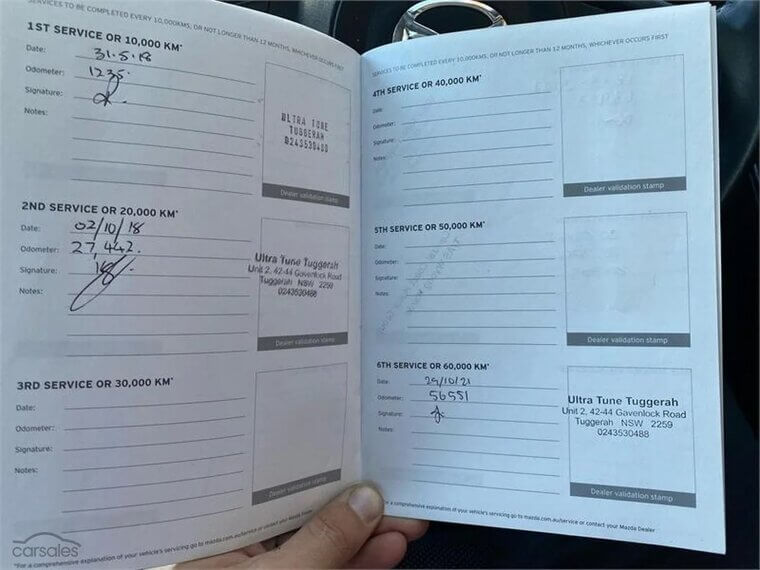 SERVICES TO BE COMPLETED EVERY 10,000KMS, OR NOT LONGER THAN 12 MONTHS, WHICHEVER OCCURS FIRST
1ST SERVICE OR 10,000 KM*
Date: 31.5.18
Odometer: 1235.
Signature:
Notes:
ULTRA TUNE
TUGGERAH
0243530488
Dealer validation stamp
2ND SERVICE OR 20,000 KM*
Date: 02/10/18
Odometer: 27,442.
Signature:
Notes:
Ultra Tune Tuggerah
Unit 2, 42-44 Gavenlock Road
Tuggerah NSW 2259
0243530488
Dealer validation stamp
3RD SERVICE OR 30,000 KM*
Date:
Odometer:
Signature:
Notes:
Dealer validation stamp
*For a comprehensive explanation of your vehicle's servicing go to mazda.com.au/service or contact your Mazda Dealer
SERVICES TO BE COMPLETED EVERY 10,000KMS, OR NOT LONGER THAN 12 MONTHS, WHICHEVER OCCURS FIRST
4TH SERVICE OR 40,000 KM*
Date:
Odometer:
Signature:
Notes:
Dealer validation stamp
5TH SERVICE OR 50,000 KM*
Date:
Odometer:
Signature:
Notes:
Dealer validation stamp
6TH SERVICE OR 60,000 KM*
Date: 29/10/21
Odometer: 56551
Signature:
Notes:
Ultra Tune Tuggerah
Unit 2, 42-44 Gavenlock Road
Tuggerah NSW 2259
0243530488
Dealer validation stamp
*For a comprehensive explanation of your vehicle's servicing go to mazda.com.au/service or contact your Mazda Dealer
carsales